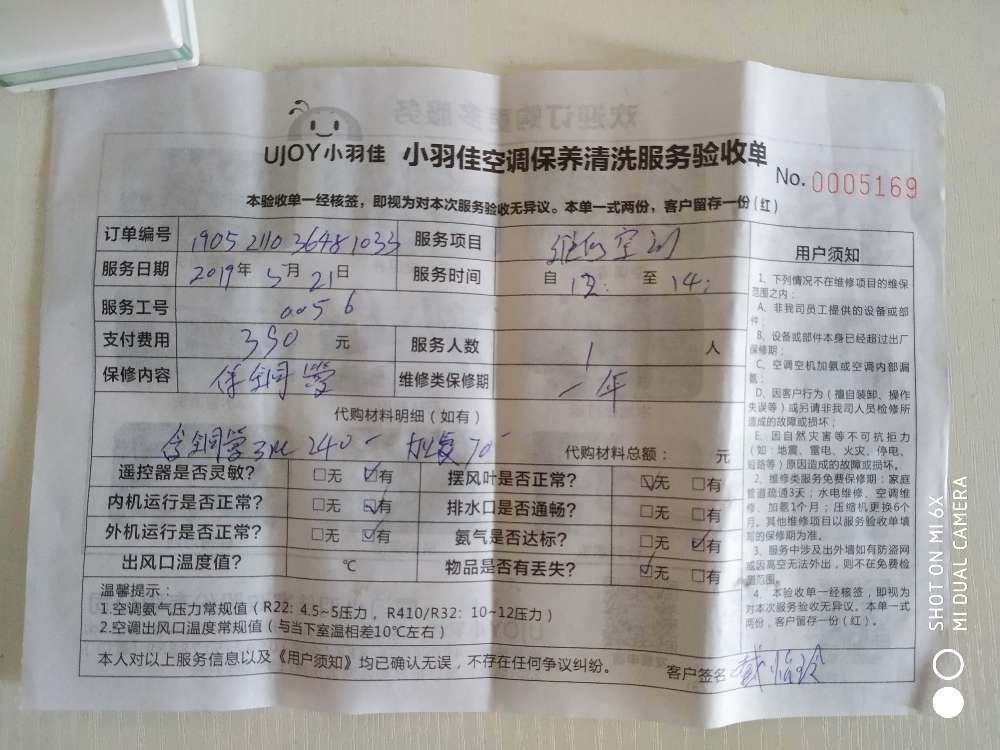 UJOY小羽佳 小羽佳空调保养清洗服务验收单
No. 0005169
本验收单一经核签，即视为对本次服务验收无异议。本单一式两份，客户留存一份（红）
订单编号 1905211036481033 服务项目 维修空调
服务日期 2019年5月21日 服务时间 自 至 14:
服务工号 0056
支付费用 390 元 服务人数 1 人
保修内容 保铜管 维修类保修期 一年
代购材料明细（如有）
含铜管3m 240 70 代购材料总额： 元
遥控器是否灵敏？ □无 ☑有 摆风叶是否正常？ ☑无 □有
内机运行是否正常？ □无 ☑有 排水口是否通畅？ □无 □有
外机运行是否正常？ □无 ☑有 氨气是否达标？ □无 ☑有
出风口温度值？ ℃ 物品是否有丢失？ ☑无 □有
温馨提示：
1.空调氨气压力常规值（R22: 4.5~5压力，R410/R32: 10~12压力）
2.空调出风口温度常规值（与当下室温相差10℃左右）
本人对以上服务信息以及《用户须知》均已确认无误，不存在任何争议纠纷。 客户签名
用户须知
1、下列情况不在维修项目的维保
范围之内：
A、非我司员工提供的设备或部
件；
B、设备或部件本身已经超过出厂
保修期；
C、空调空机加氨或空调内部漏
氨；
D、因客户行为（擅自装卸、操作
失误等）或另请非我司人员检修所
造成的故障或损坏；
E、因自然灾害等不可抗拒力
（如：地震、雷电、火灾、停电、
短路等）原因造成的故障或损坏。
2、维修类服务免费保修期：家庭
管道疏通3天；水电维修、空调维
修、加氨1个月；压缩机更换6个
月。其他维修项目以服务验收单填
写的保修期为准。
3、服务中涉及出外墙如有防盗网
或因高空无法外出，则不在免费检
测范围。
4、本验收单一经核签，即视为
对本次服务验收无异议。本单一式
两份，客户留存一份（红）。
SHOT ON MI 6X
MI DUAL CAMERA